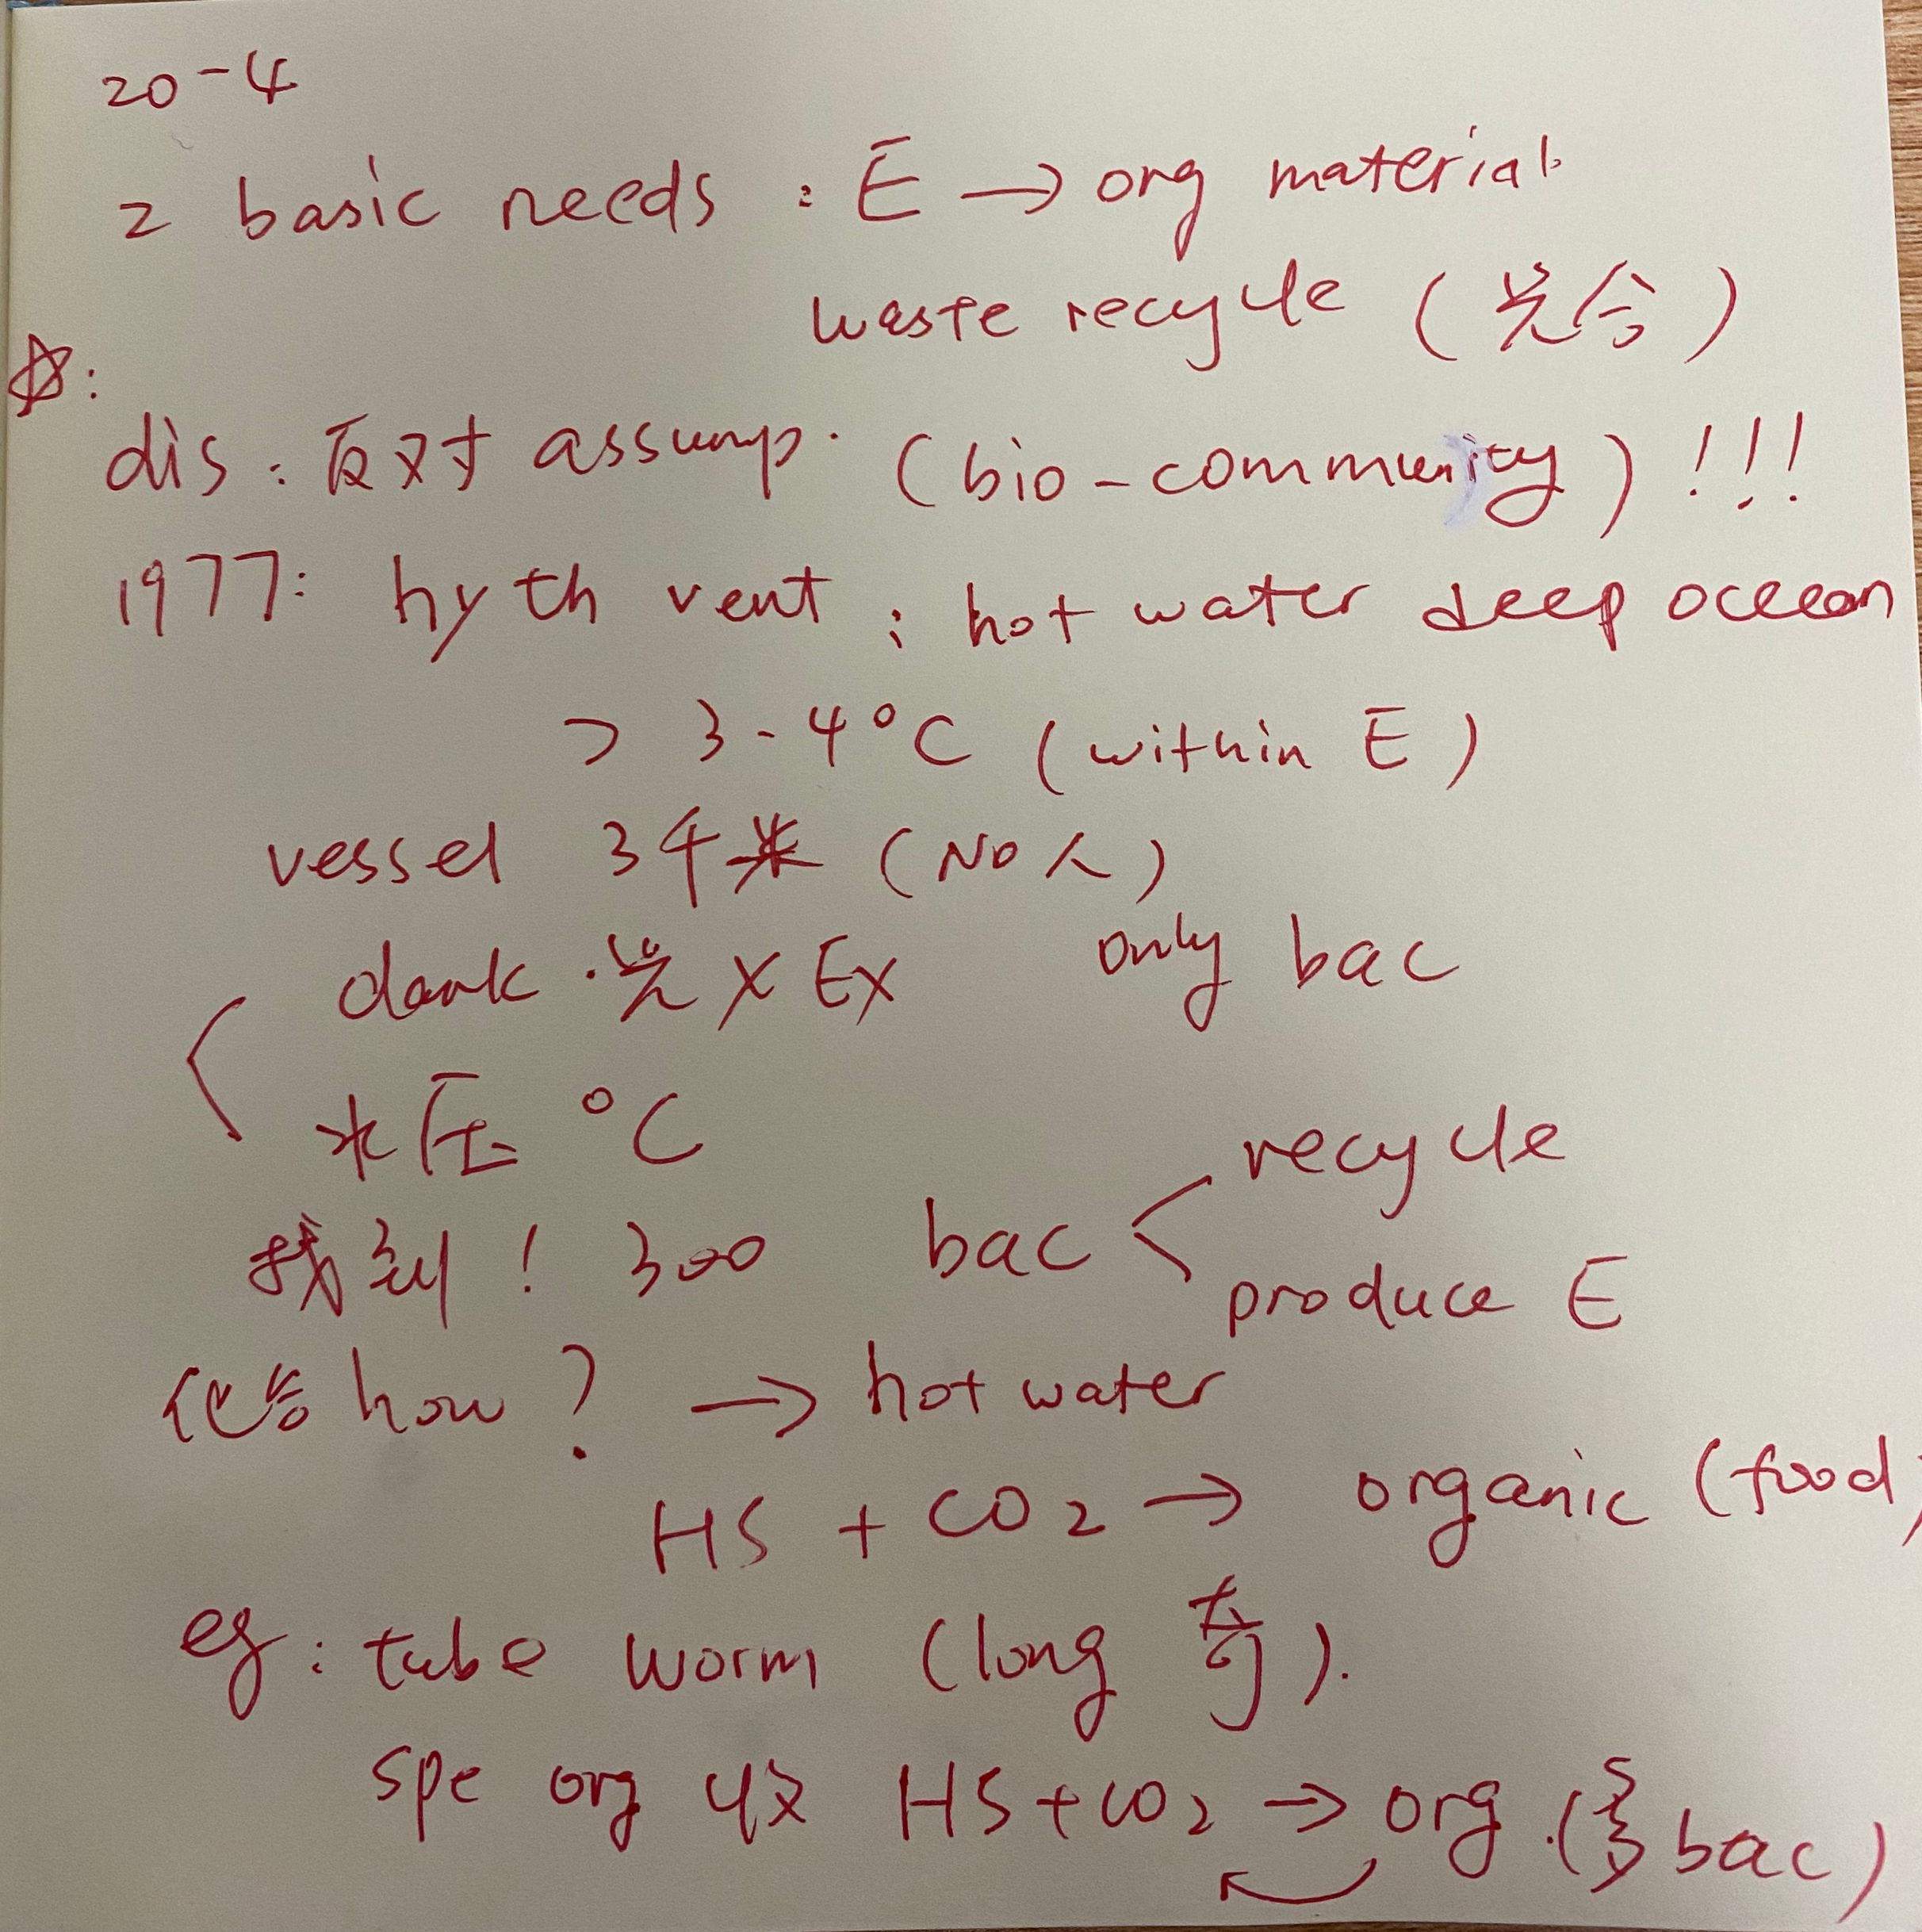 20-4
2 basic needs : E → org material
waste recycle (光合)
☆:
dis : 反对 assump. (bio-community) !!!
1977: hyth vent ; hot water deep oceean
> 3-4°C (within E)
vessel 3千米 (No 人)
dark . 光 X EX only bac
水压 °C
recycle
找到! 300 bac <
produce E
化合 how? → hot water
HS + CO2 → organic (food)
eg : tube worm (long 奇).
spe org 收 HS+CO2 → org .(多 bac)